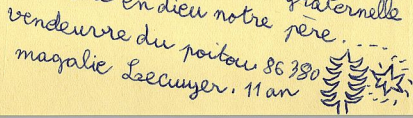 en dieu notre père.
fraternelle
vendeuvre du poitou 86380
magalie Lecuyer. 11 an